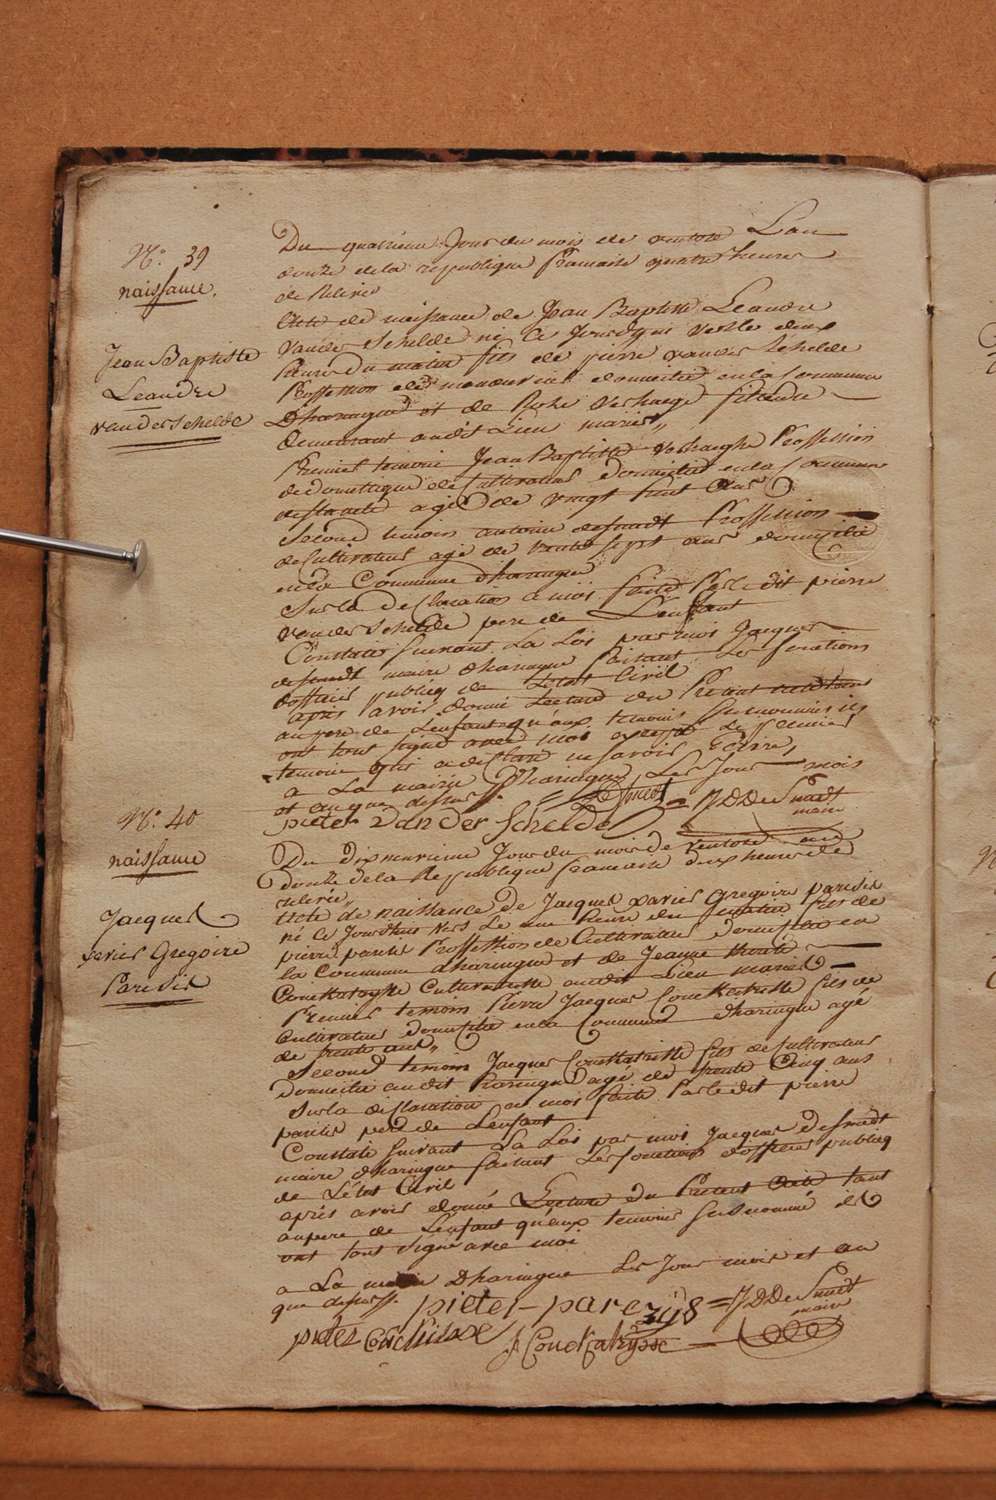 N.° 39
naissance.
Jean Baptiste
Leandre
vanderSchelde
Du quatrieme Jour du mois de ventose L'an
douze de la republique francaise quatre heures
de Relevée
Acte de naissance de Jean Baptiste Leandre
vander Schelde né Ce Jourd'hui vers le deux
heures du matin fils de pierre vander Schelde
Proffession de manouvrier domicilié en la Commune
D'haringue et de Rosa verhaege fileuse
demeurant audit Lieu mariés,,
Premier temoin Jean Baptiste verhaeghe Proffession
de domestique de Cultivateur domicilié en la Commune
agé de vingt huit ans
Second temoin antoine desmedt Proffession
de Cultivateur agé de trente sept ans domicilié
en la Commune d'haringue
Sur la declaration a moi faite Par le dit pierre
vander Schelde pere de L'enfant
Constaté Suivant La Loi par moi Jacques
desmedt maire d'haringue faisant Les fonctions
d'officier publicq de L'état Civil
apres avoir donné Lecture du Present acte tant
au pere de L'enfant qu'aux temoins Susnommés ils
ont tout signé avec moi excepté Le premier
temoin qui a declaré ne savoir Ecrire,
a La mairie D'haringue Les Jour mois
et an que dessus.
DeSmedt = JDDeSmedt
maire
pieter van der Schelde
N.° 40
naissance
Jacques
xavier Gregoire
Parisis
Du dixneuvieme Jour du mois de ventose an
douze de la Republique francaise deux heures de
relevée,,
Acte de naissance de Jacques xavier Gregoire parisis
né Ce Jourd'hui vers Le une heure du matin fils de
pierre parisis Proffession de Cultivateur domicilié en
la Commune d'haringue et de Jeanne therese
Couttatryste Cultivatrice audit Lieu mariés
Premier temoin Pierre Jacques Couttatriste fils de
Cultivateur domicilié en la Commune D'haringue agé
de trente ans,,
Second temoin Jacques Couttatriste fils de Cultivateur
Domicilié audit haringue agé de trente Cinq ans
Sur la declaration a moi faite Par le dit pierre
parisis pere de L'enfant
Constaté Suivant La Loi par moi Jacques desmedt
maire d'haringue faisant Les fonctions d'officier publicq
de L'état Civil
aprés avoir donné Lecture du Present acte tant
au pere de L'enfant qu'aux temoins Susnommé ils
ont tout signé avec moi
a La mairie D'haringue Les Jour mois et an
que dessus.
pieter - parezijs = JDDeSmedt
maire